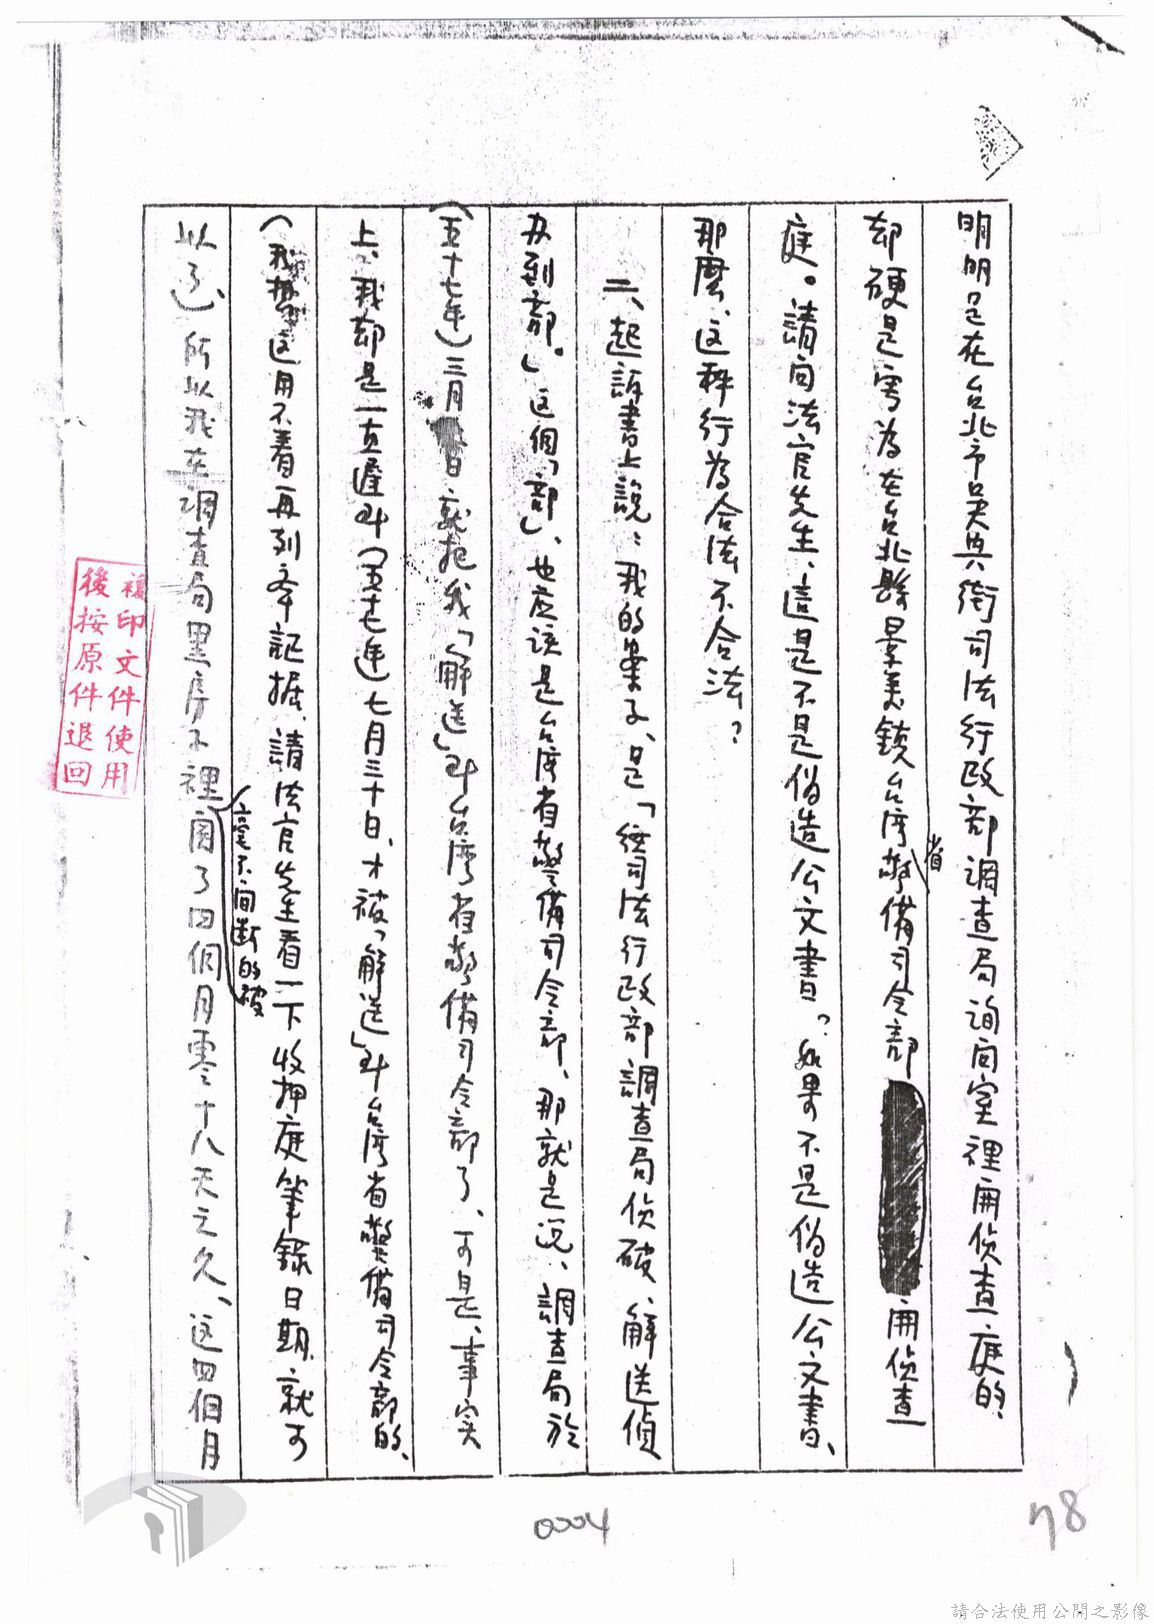 明明是在台北市吳興街司法行政部調查局询问室裡開侦查庭的、
却硬是寫為在台北縣景美鎮台湾省警備司令部開侦查
庭。請问法官先生、這是不是偽造公文書？如果不是偽造公文書、
那麼、这种行为合法不合法？
二、起訴書上說：我的案子、是「經司法行政部調查局侦破、解送偵
办到部。」这個「部」、也应该是台湾省警備司令部、那就是说、調查局於
（五十七年）三月日就把我「解送」到台湾省警備司令部了、可是、事实
上、我却是一直遲到（五十七年七月三十日、才被「解送」到台湾省警備司令部的、
（我想这用不着再列举証据、請法官先生看一下收押庭筆錄日期、就可
以了）所以我在調查局黑房子裡毫不间断的被関了四個月零十八天之久、这四個月
複印文件使用
後按原件退回
0004
78
請合法使用公開之影像